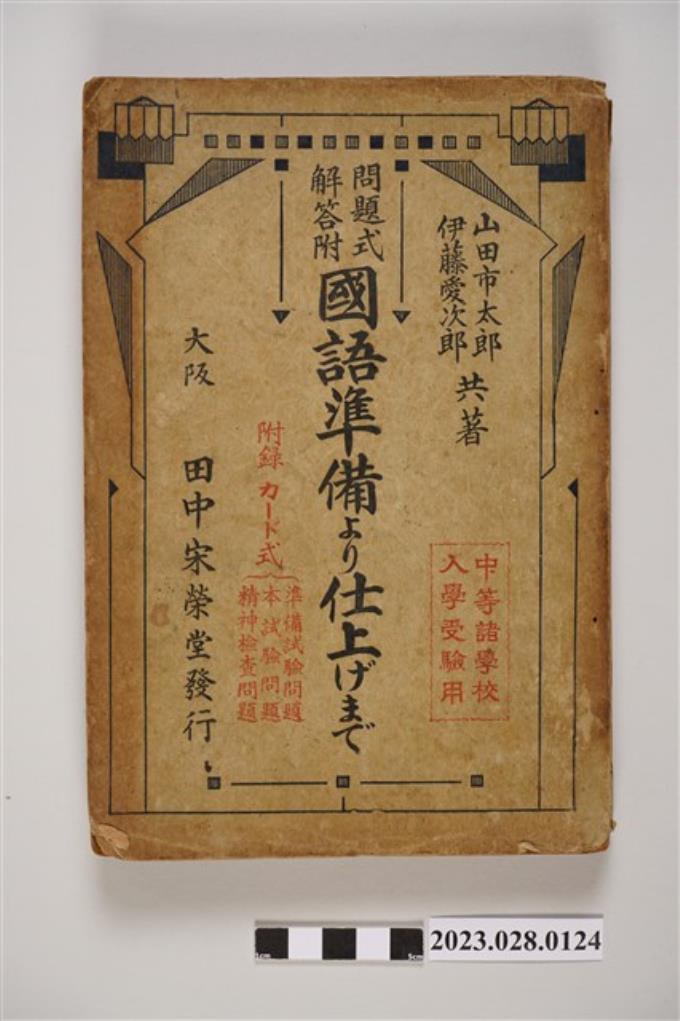 山田市太郎
伊藤愛次郎
共著
中等諸學校
入學受驗用
問題式
解答附
國語準備より仕上げまで
附録 カード式
準備試驗問題
本試驗問題
精神檢查問題
大阪 田中宋榮堂發行
1cm
5cm
2023.028.0124